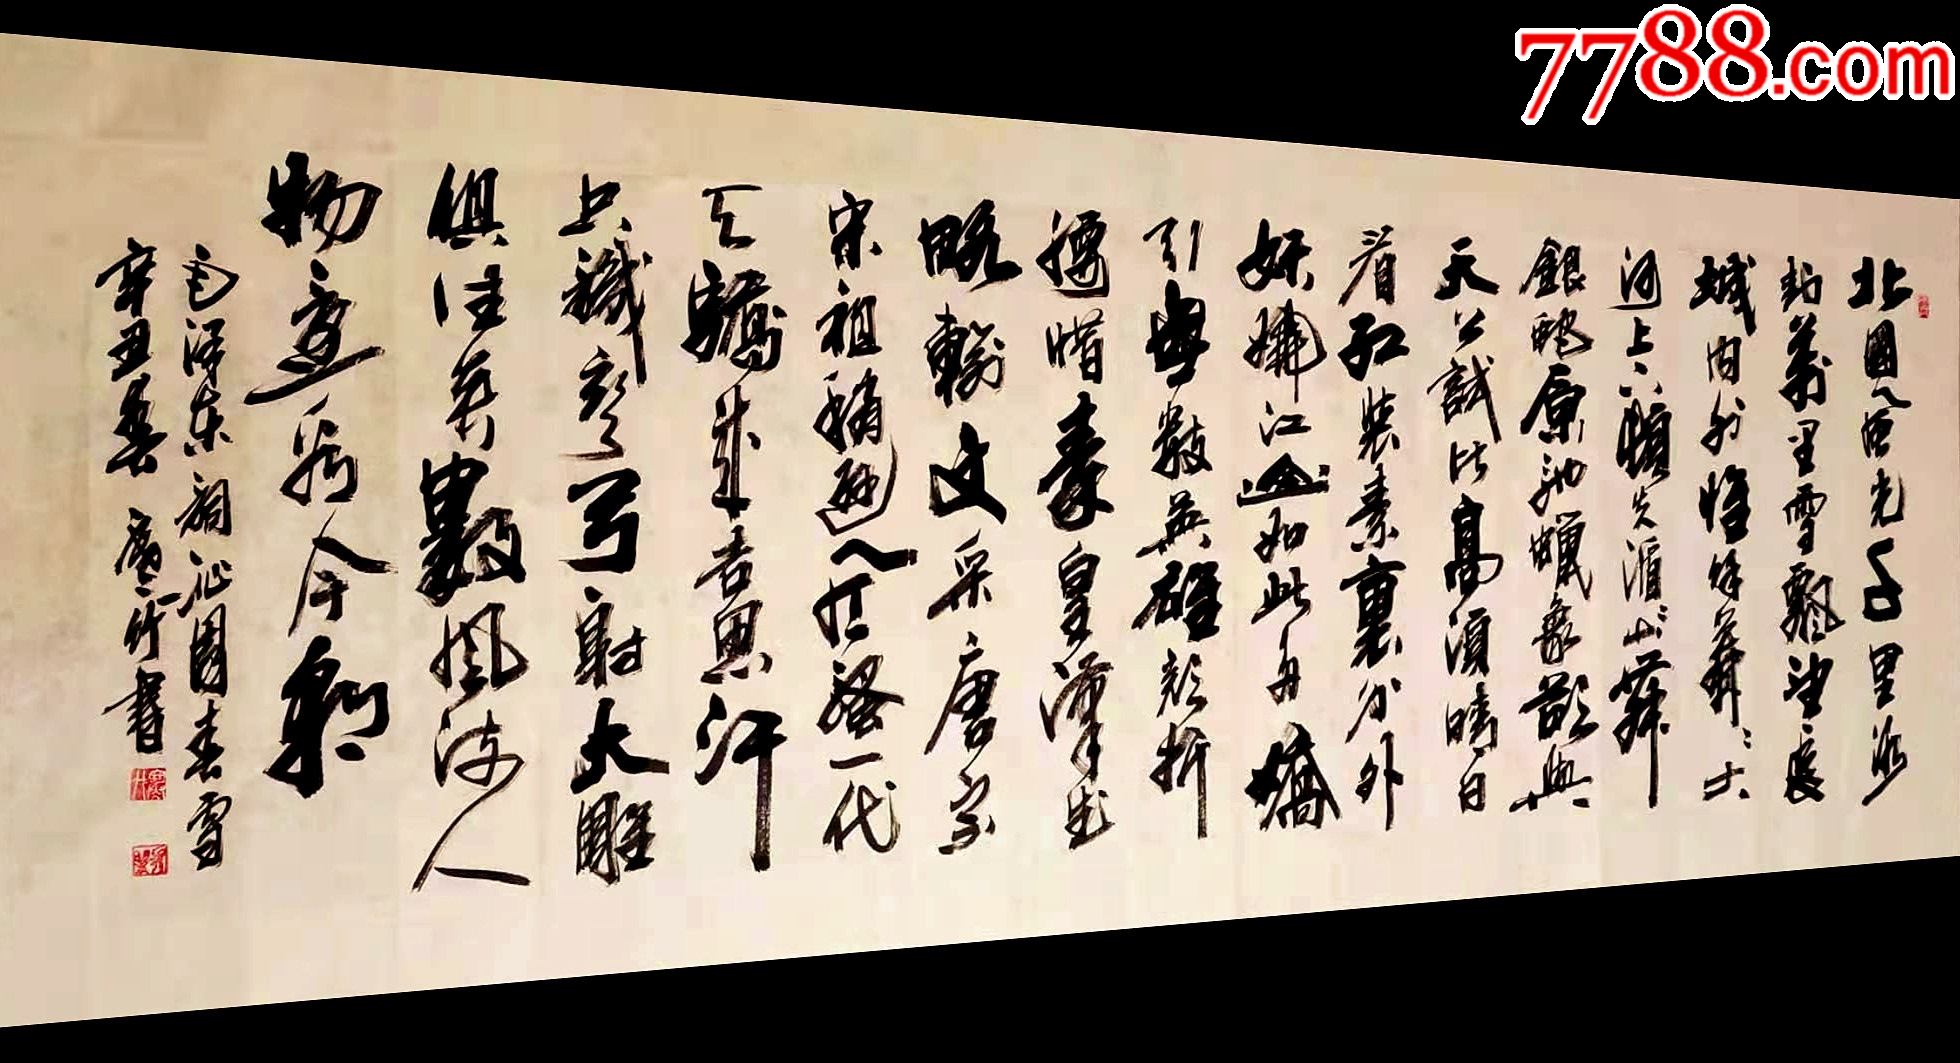 7788.com
北國風光千里冰
封萬里雪飄望長
城内外惟餘莽莽大
河上下頓失滔滔山舞
銀蛇原馳蠟象欲與
天公試比高須晴日
看紅裝素裹分外
妖嬈江山如此多嬌
引無數英雄競折
腰惜秦皇漢武
略輸文采唐宗
宋祖稍遜風騷一代
天驕成吉思汗
只識彎弓射大雕
俱往矣數風流人
物還看今朝
毛澤東詞沁園春雪
辛丑夏 慶竹書